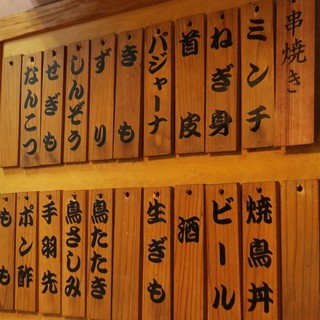 串焼き
ミンチ
ねぎ身
首皮
パジャーナ
きも
ずり
しんぞう
せぎも
なんこつ
焼鳥丼
ビール
酒
生ぎも
鳥たたき
鳥さしみ
手羽先
ポン酢
もも